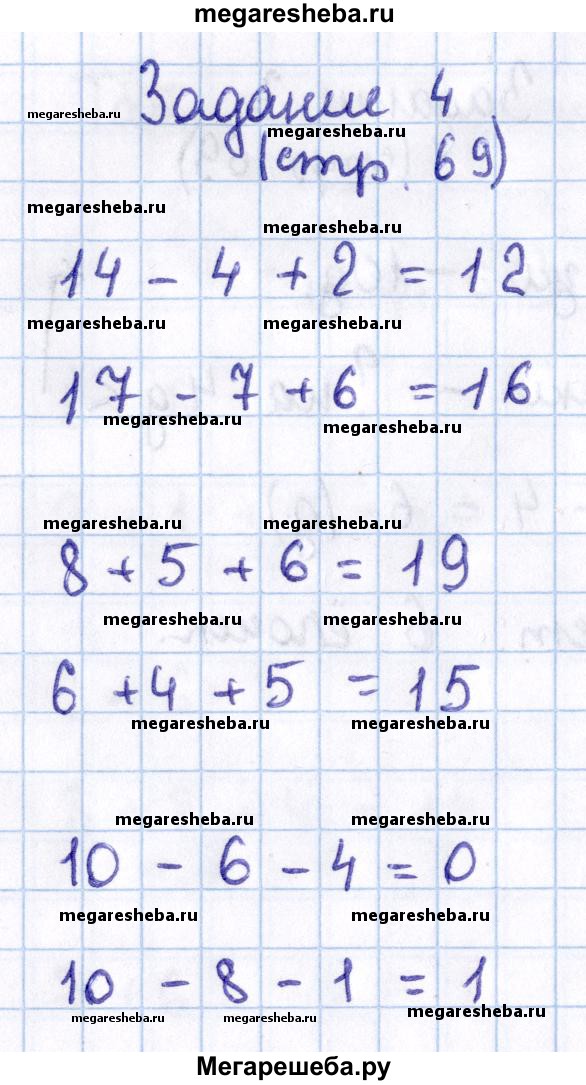 megaresheba.ru
Задание 4
megaresheba.ru
megaresheba.ru
(стр. 69)
megaresheba.ru
megaresheba.ru
14 - 4 + 2 = 12
megaresheba.ru megaresheba.ru
17 - 7 + 6 = 16
megaresheba.ru megaresheba.ru
megaresheba.ru megaresheba.ru
8 + 5 + 6 = 19
megaresheba.ru megaresheba.ru
6 + 4 + 5 = 15
megaresheba.ru megaresheba.ru
megaresheba.ru megaresheba.ru
10 - 6 - 4 = 0
megaresheba.ru megaresheba.ru
10 - 8 - 1 = 1
megaresheba.ru megaresheba.ru megaresheba.ru
Мегарешеба.ру